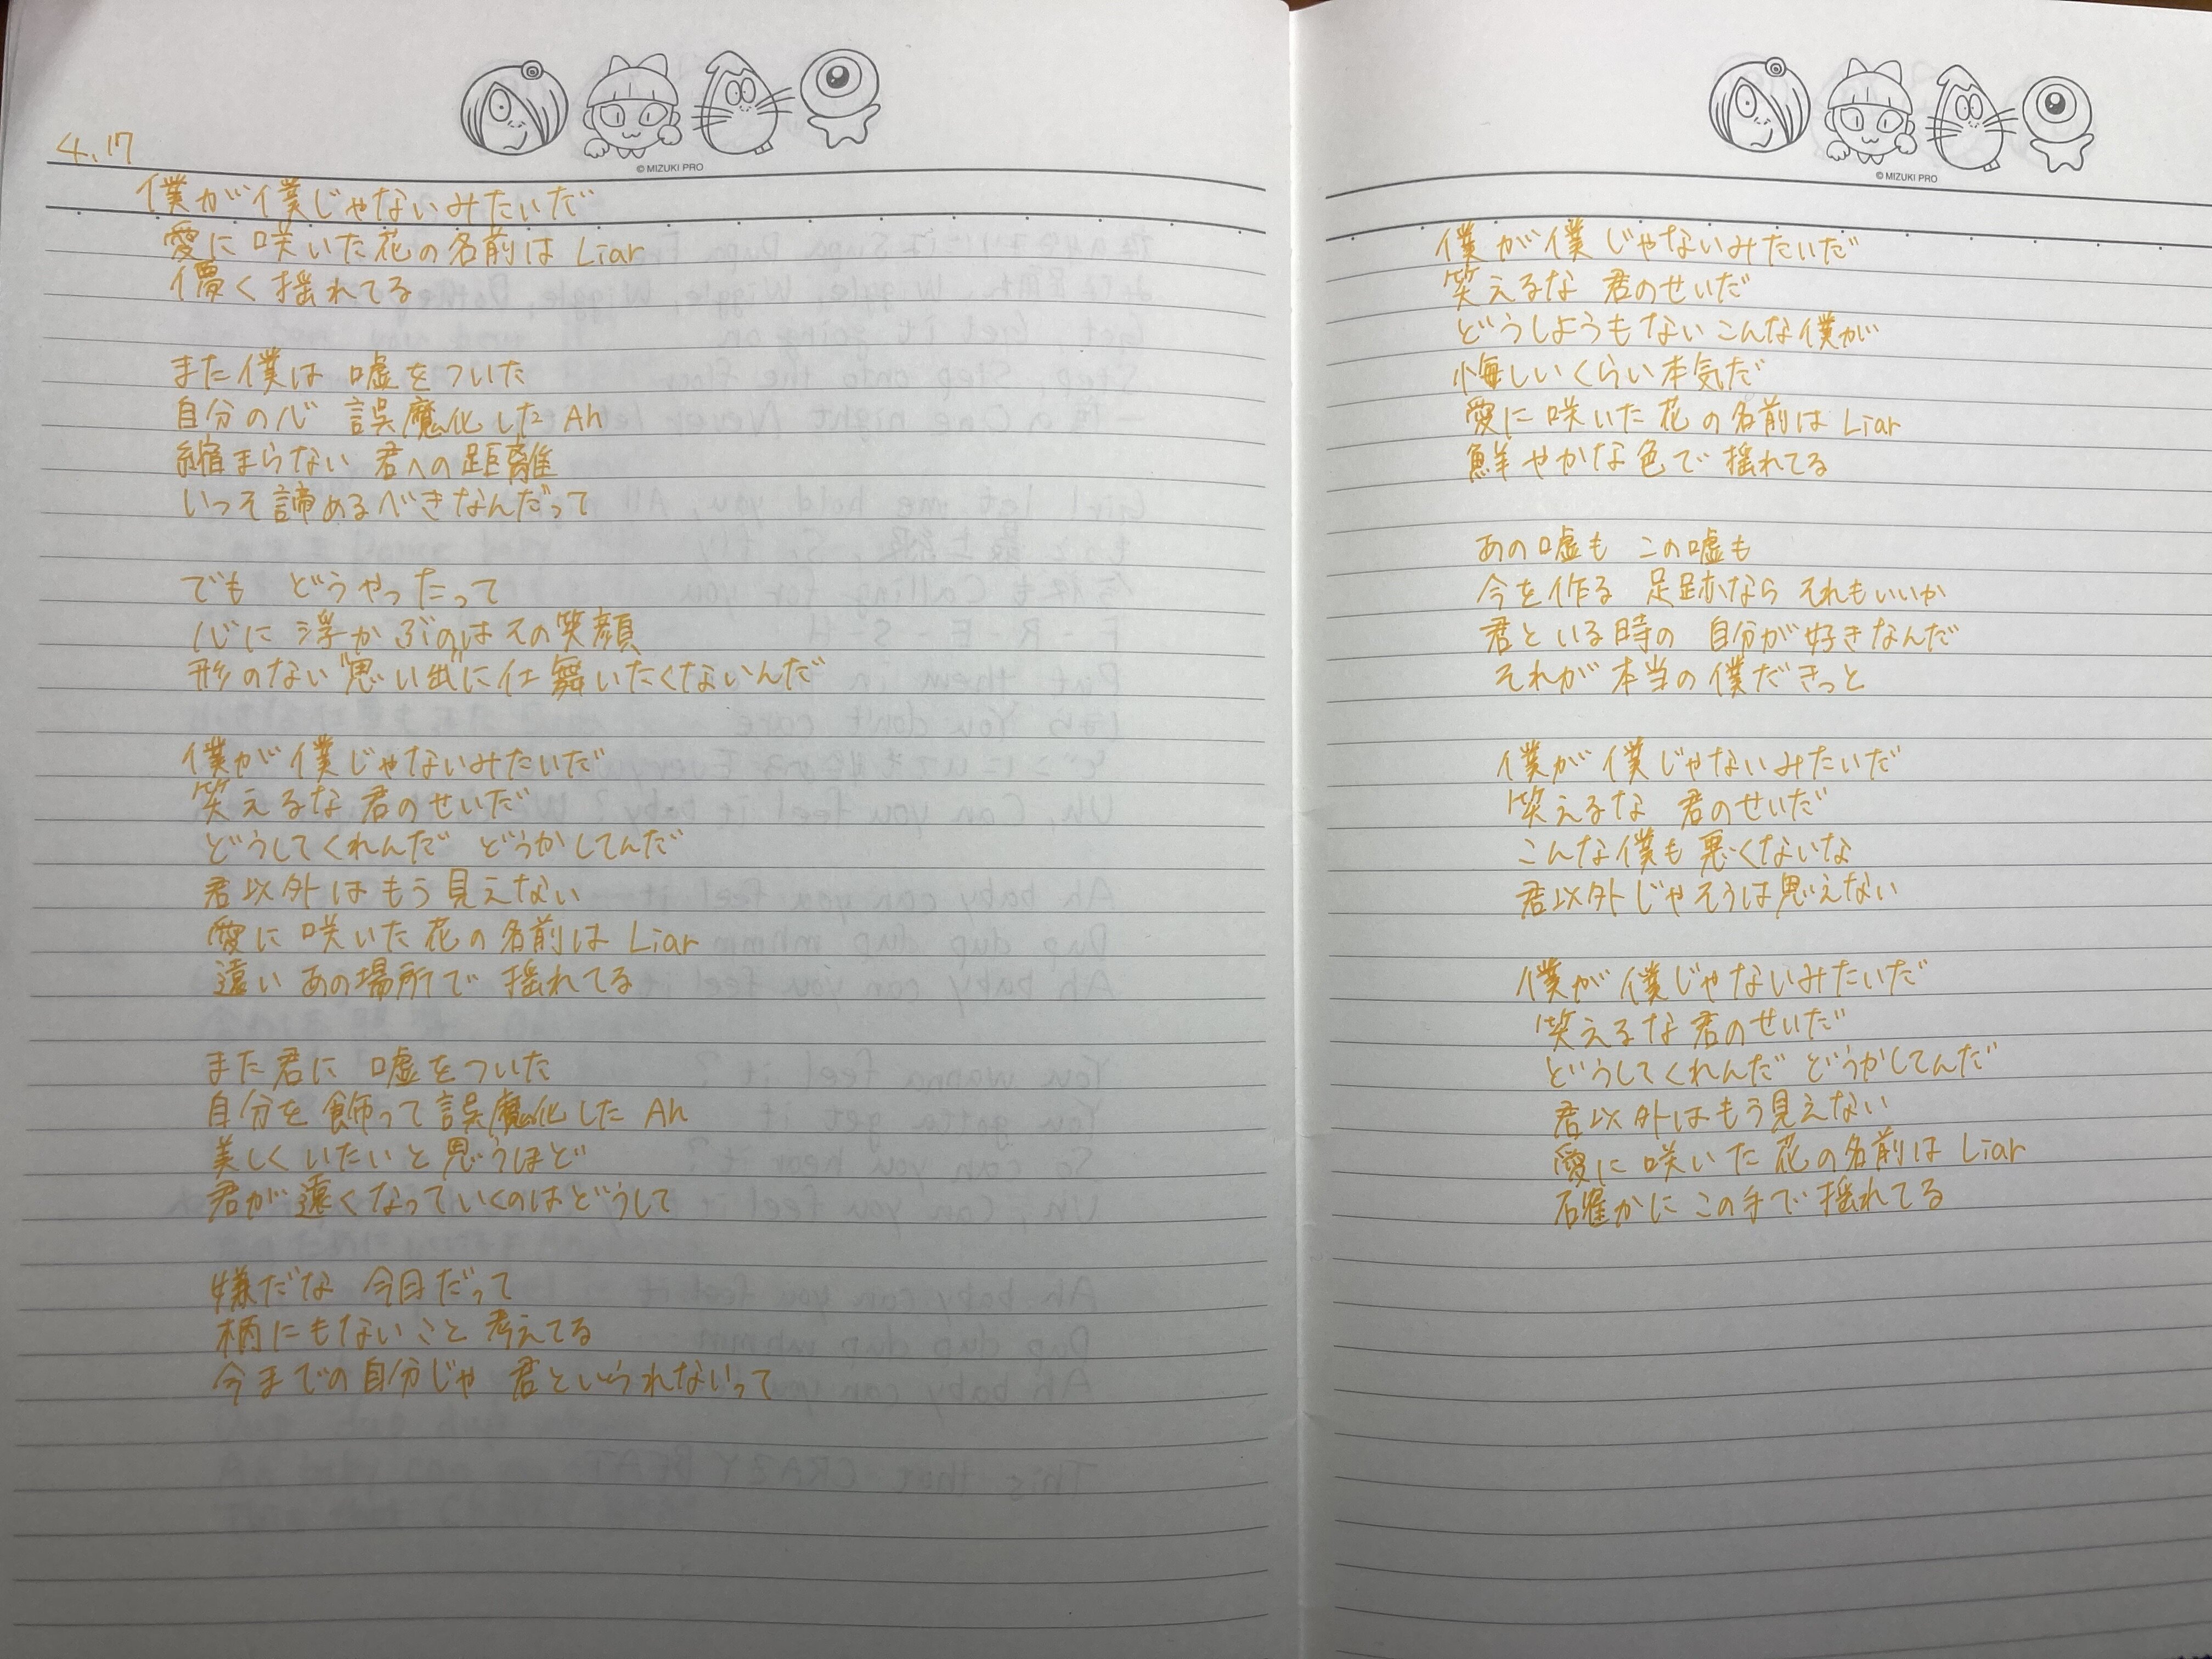 4.17
© MIZUKI PRO
僕が僕じゃないみたいだ
愛に咲いた花の名前は Liar
儚く揺れてる
また僕は 嘘をついた
自分の心 誤魔化した Ah
縮まらない 君への距離
いっそ諦めるべきなんだって
でも どうやったって
心に浮かぶのはその笑顔
形のない"思い出"に仕舞いたくないんだ
僕が僕じゃないみたいだ
笑えるな 君のせいだ
どうしてくれんだ どうかしてんだ
君以外はもう見えない
愛に咲いた花の名前は Liar
遠いあの場所で 揺れてる
また君に 嘘をついた
自分を飾って誤魔化した Ah
美しくいたいと思うほど
君が遠くなっていくのはどうして
嫌だな 今日だって
柄にもないこと 考えてる
今までの自分じゃ 君といられないって
© MIZUKI PRO
僕が僕じゃないみたいだ
笑えるな 君のせいだ
どうしようもない こんな僕が
悔しいくらい本気だ
愛に咲いた花の名前は Liar
鮮やかな色で 揺れてる
あの嘘も この嘘も
今を作る 足跡なら それもいいか
君といる時の 自分が好きなんだ
それが本当の僕だきっと
僕が僕じゃないみたいだ
笑えるな 君のせいだ
こんな僕も悪くないな
君以外じゃそうは思えない
僕が僕じゃないみたいだ
笑えるな君のせいだ
どうしてくれんだ どうかしてんだ
君以外はもう見えない
愛に咲いた花の名前は Liar
確かにこの手で 揺れてる